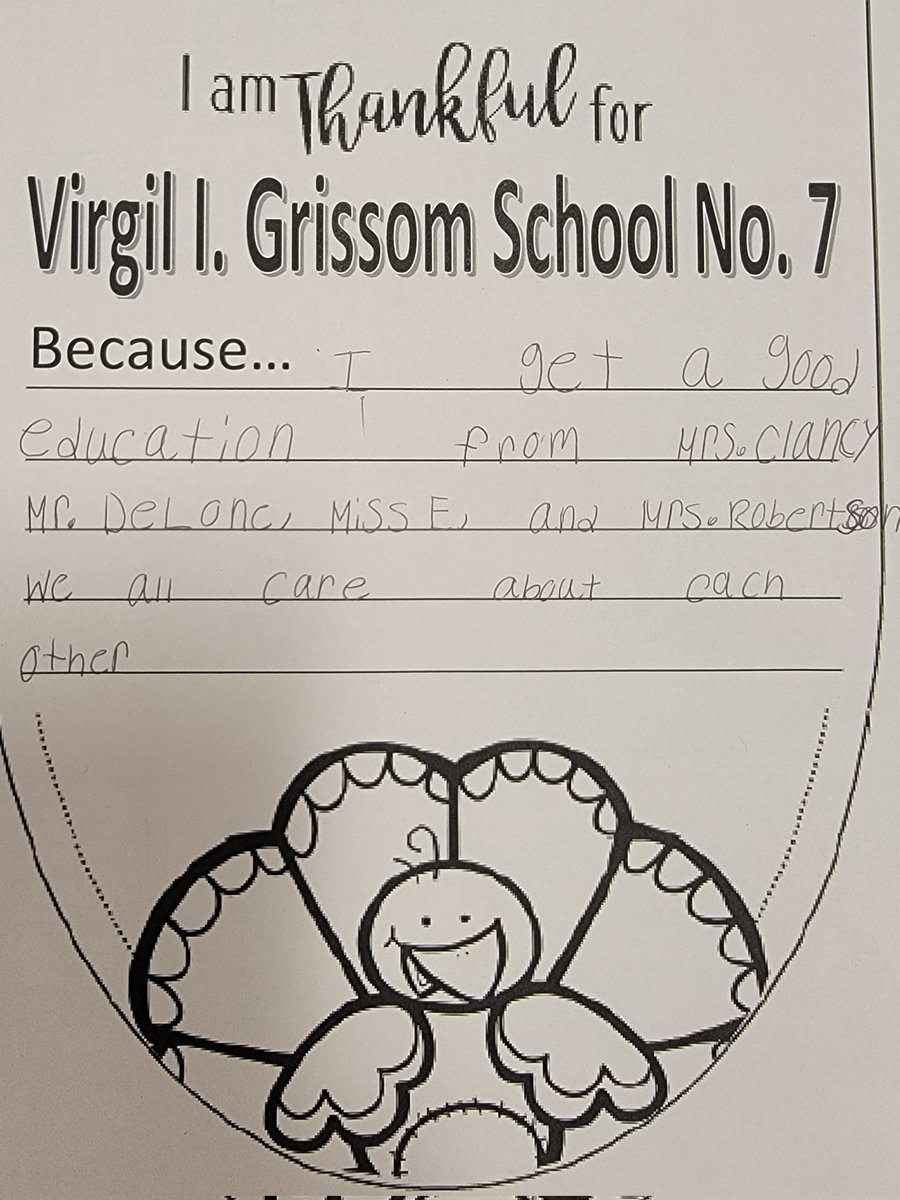 I am Thankful for
Virgil I. Grissom School No. 7
Because... I get a good
education from Mrs. Clancy
Mr. DeLonc, Miss E, and Mrs. Robertson
We all care about each
other